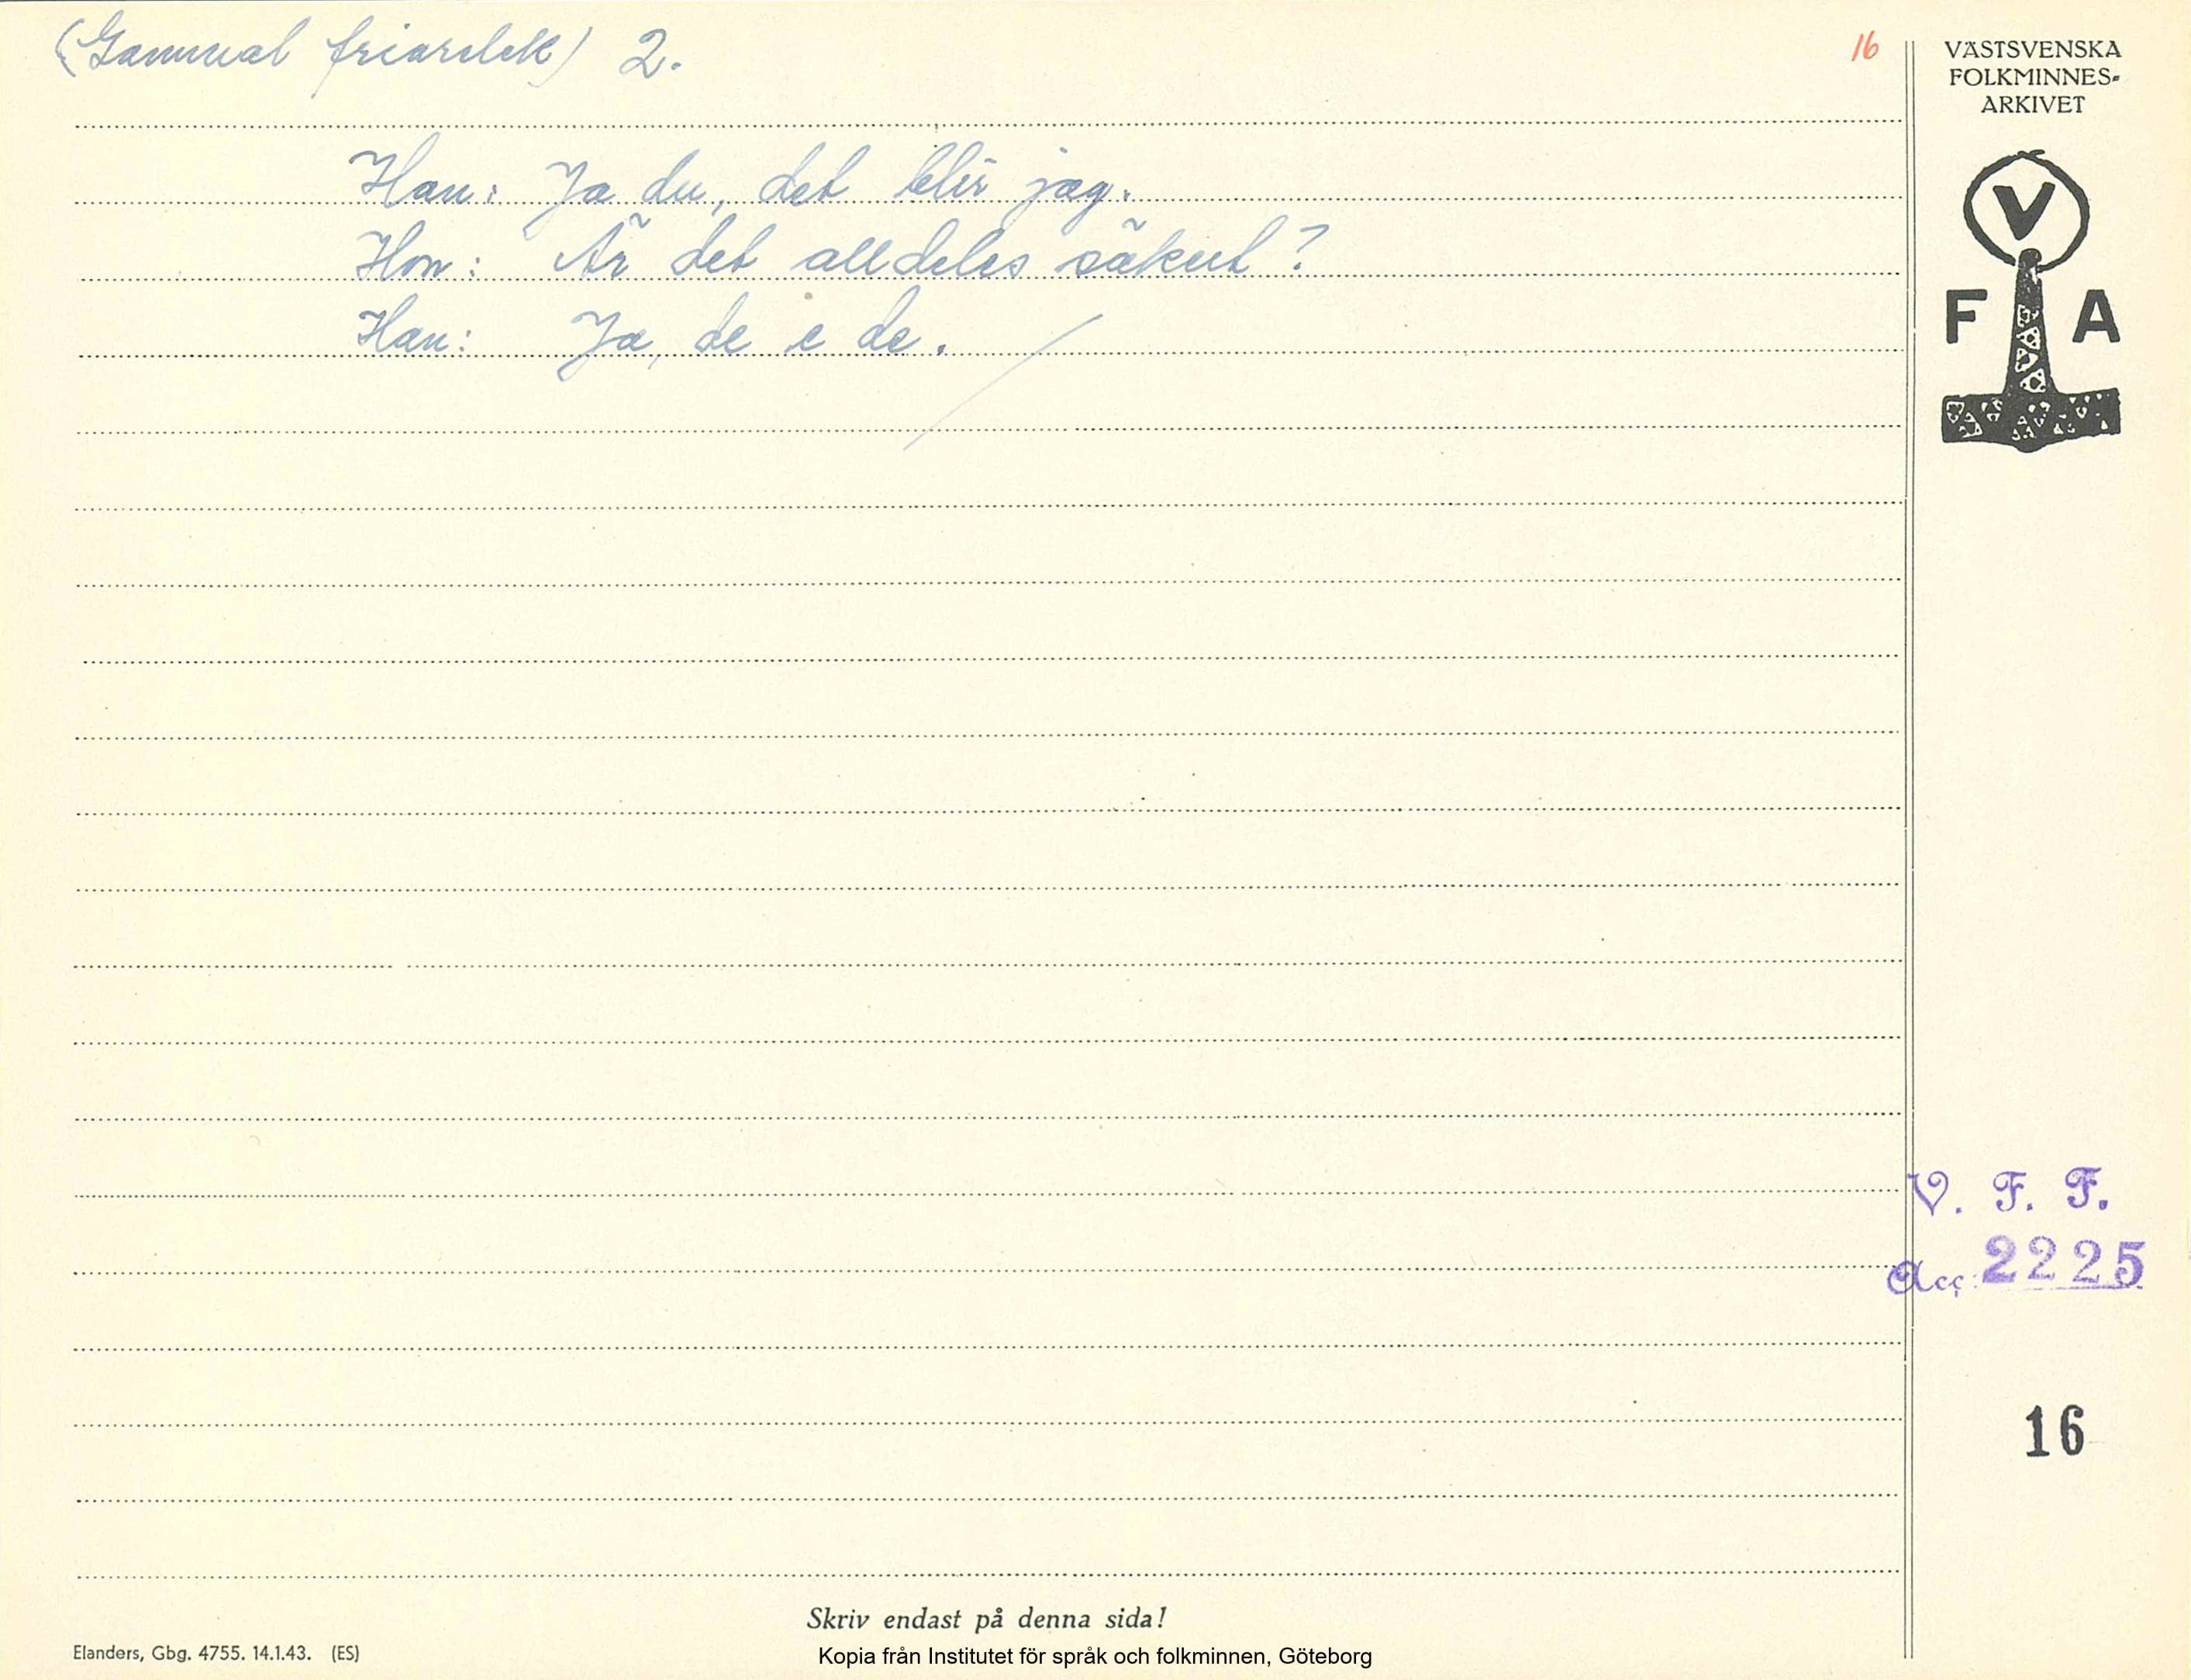 (Gammal friarelek) 2.
16
Han: Ja du, det blir jag.
Hon: Är det alldeles säkert?
Han: Ja, de e de.
VÄSTSVENSKA
FOLKMINNES-
ARKIVET
V
F A
V. F. F.
Acc. 2225
16
Skriv endast på denna sida!
Elanders, Gbg. 4755. 14.1.43. (ES)
Kopia från Institutet för språk och folkminnen, Göteborg